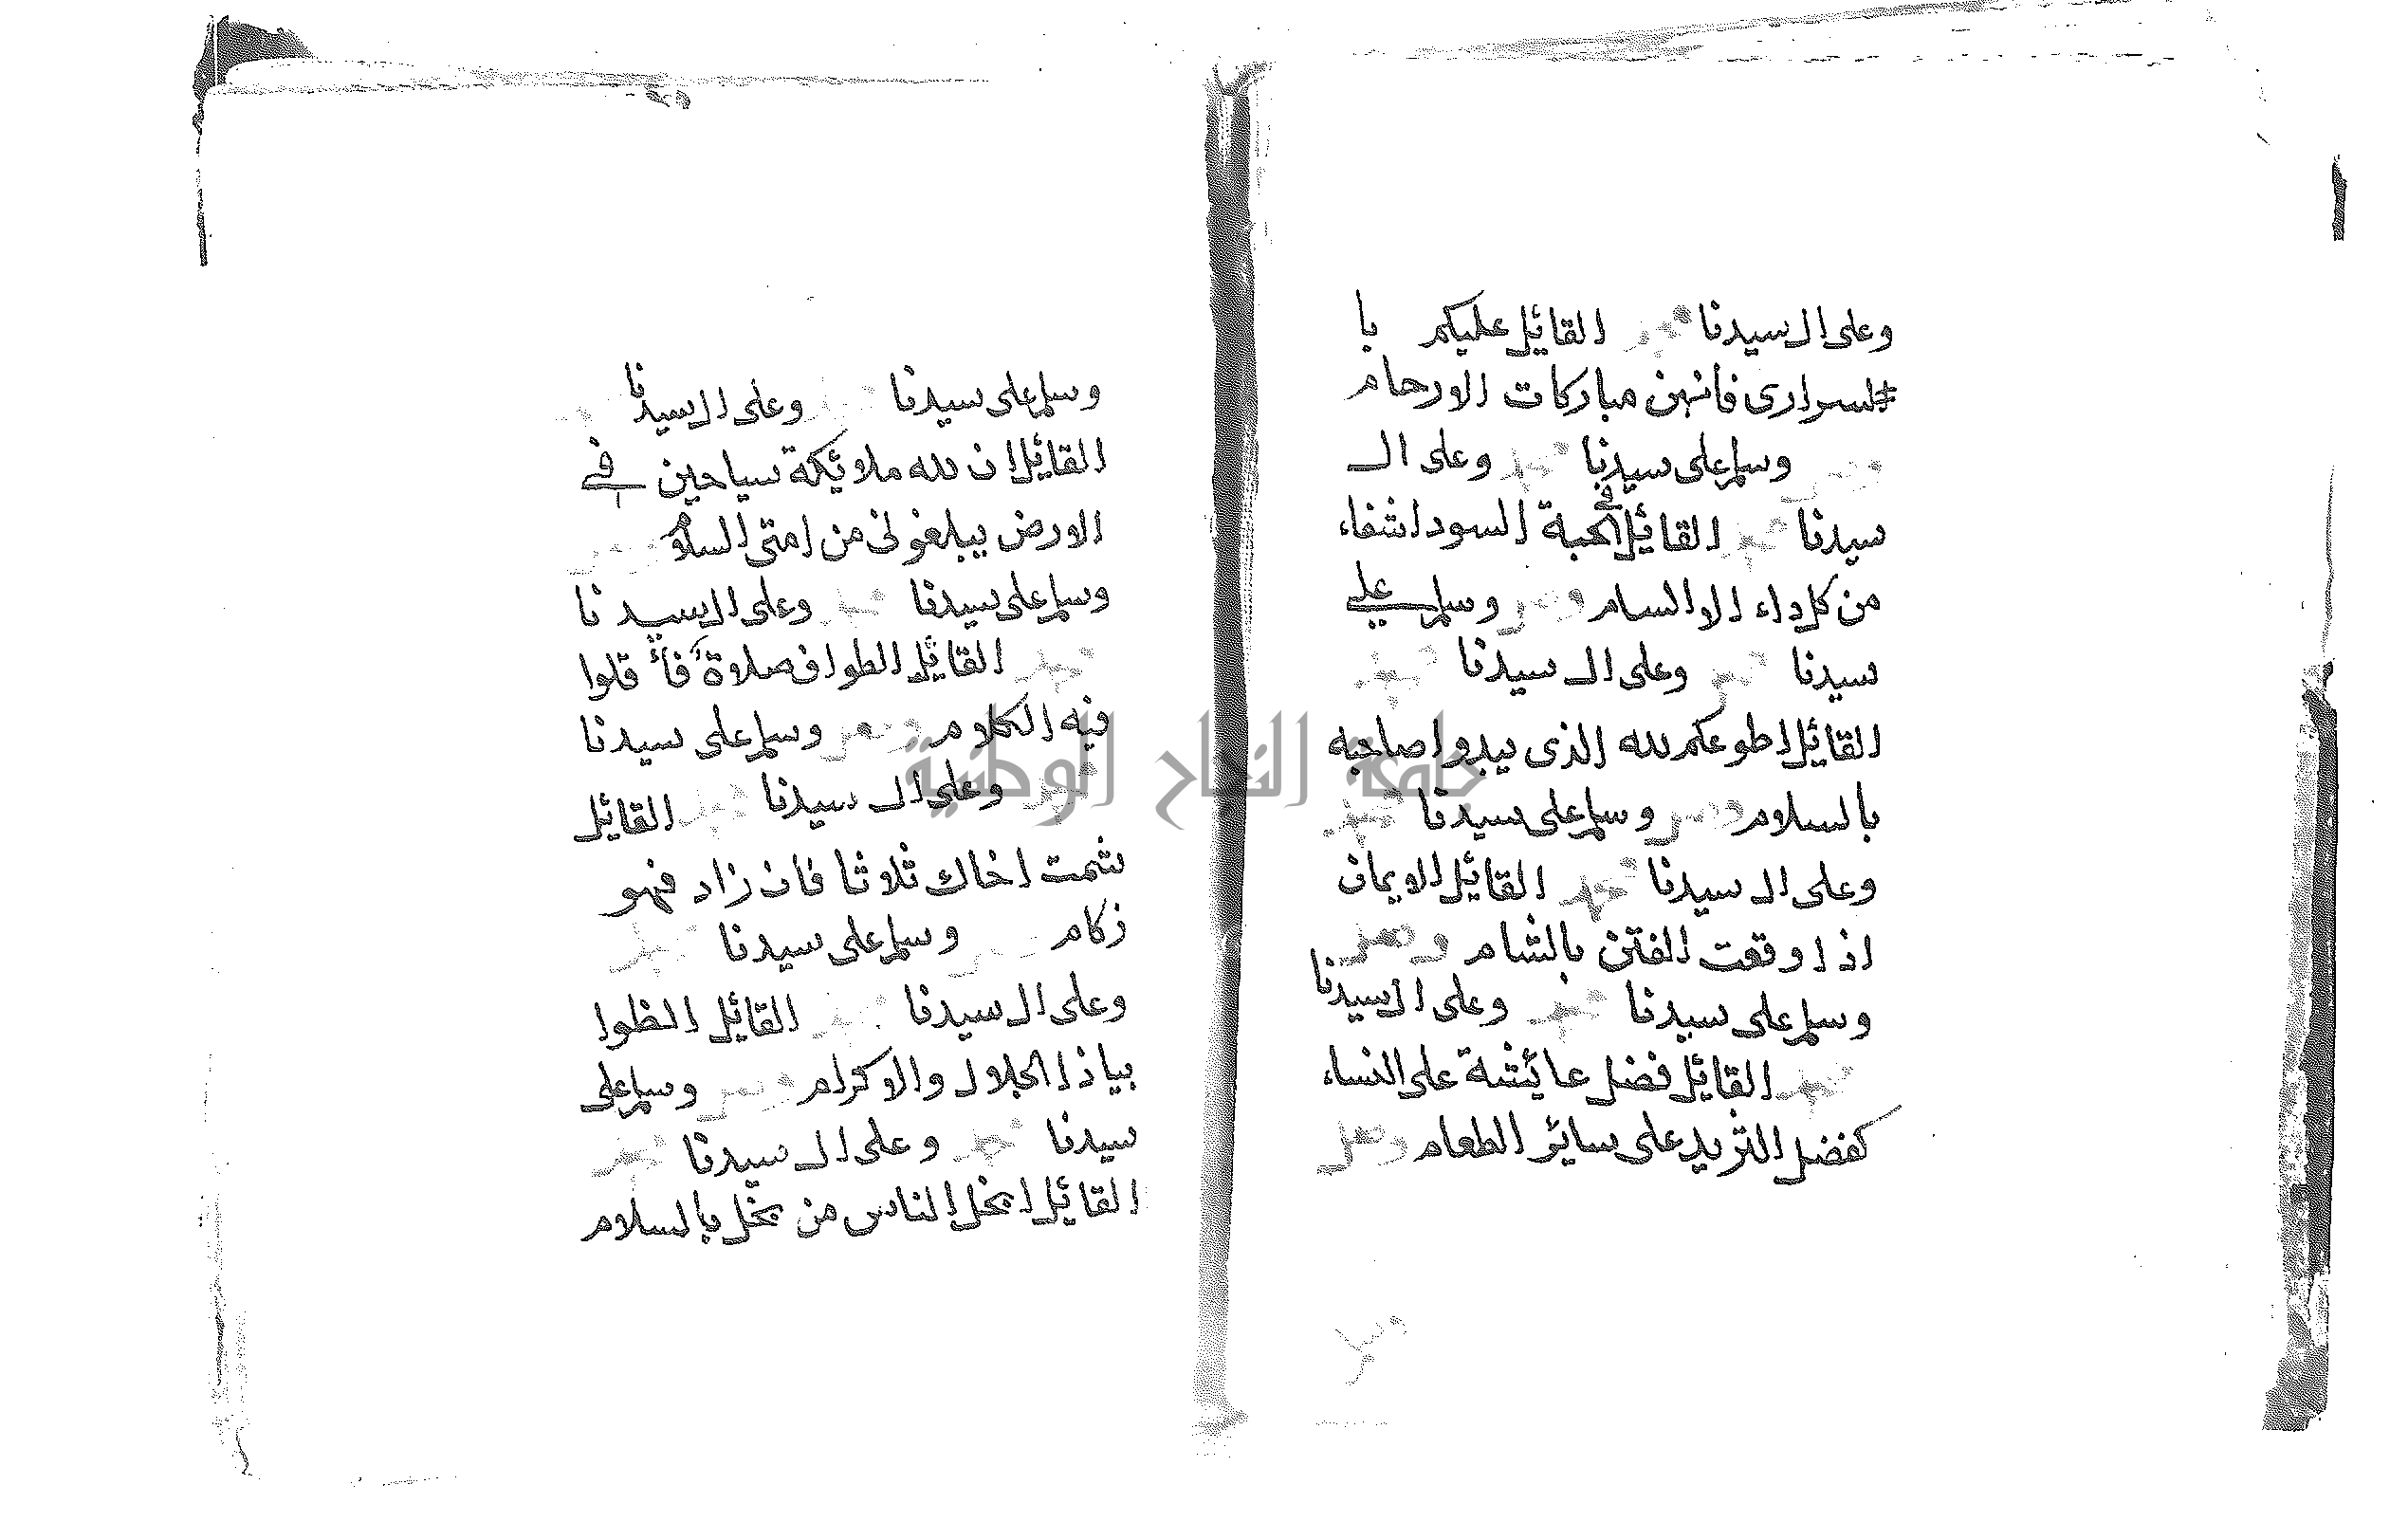 وعلى ال سيدنا محمد القايل عليكم با
لسرارى فأنهن مباركات الارحام
وصل وسلم على سيدنا محمد وعلى ال
سيدنا محمد القايل في الحبة السودا شفاء
من كل داء الا السام وصل وسلم على
سيدنا محمد وعلى ال سيدنا محمد
القايل اطوعكم لله الذى يبدوا صاحبه
بالسلام وصل وسلم على سيدنا محمد
وعلى ال سيدنا محمد القايل الايمان
اذا وقعت الفتن بالشام وصل
وسلم على سيدنا محمد وعلى ال سيدنا
محمد القايل فضل عائشة على النساء
كفضل الثريد على سائر الطعام وصل
وسلم
وسلم على سيدنا وعلى ال سيدنا
القايل ان لله ملائكة سياحين في
الارض يبلغونى من امتى السلام
وسلم على سيدنا محمد وعلى ال سيدنا
محمد القايل الطواف صلاة فأقلوا
فيه الكلام وصل وسلم على سيدنا
محمد وعلى ال سيدنا محمد القايل
شمت اخاك ثلاثا فان زاد فهو
زكام وسلم على سيدنا محمد
وعلى ال سيدنا محمد القايل الظوا
بياذا الجلال والاكرام وصل وسلم على
سيدنا محمد وعلى ال سيدنا محمد
القايل ابخل الناس من بخل بالسلام
جامعة النجاح الوطنية